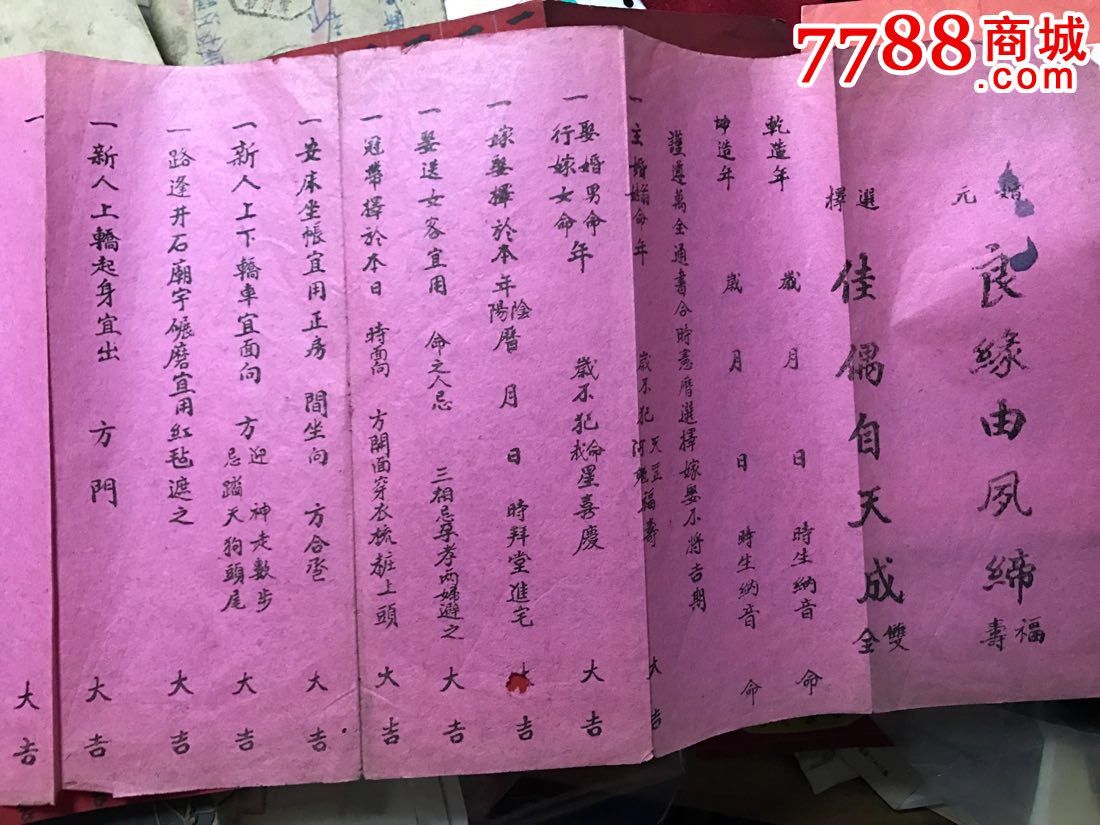 7788商城
.com
婚元
良緣由夙締
福壽
選擇
佳偶自天成
雙全
乾造年 歲 月 日 時生納音 命
坤造年 歲 月 日 時生納音 命
謹遵萬全通書合時憲曆選擇嫁娶不將吉期
一主婚 命 年 歲不犯天罡 福壽 大吉
一娶婚男命 行嫁女命 年 歲不犯命 星喜慶 大吉
一嫁娶擇於本年陰陽曆 月 日 時拜堂進宅 大吉
一娶送女客宜用 命之人忌 三相忌孕孝兩婦避之 大吉
一冠帶擇於本日 時面向 方開面穿衣梳粧上頭 大吉
一安床坐帳宜用正房 間坐向 方合卺 大吉
一新人上下轎車宜面向 方迎 神走數步 忌蹈天狗頭尾 大吉
一路逢井石廟宇碾磨宜用紅毡遮之 大吉
一新人上轎起身宜出 方門 大吉
一 大吉